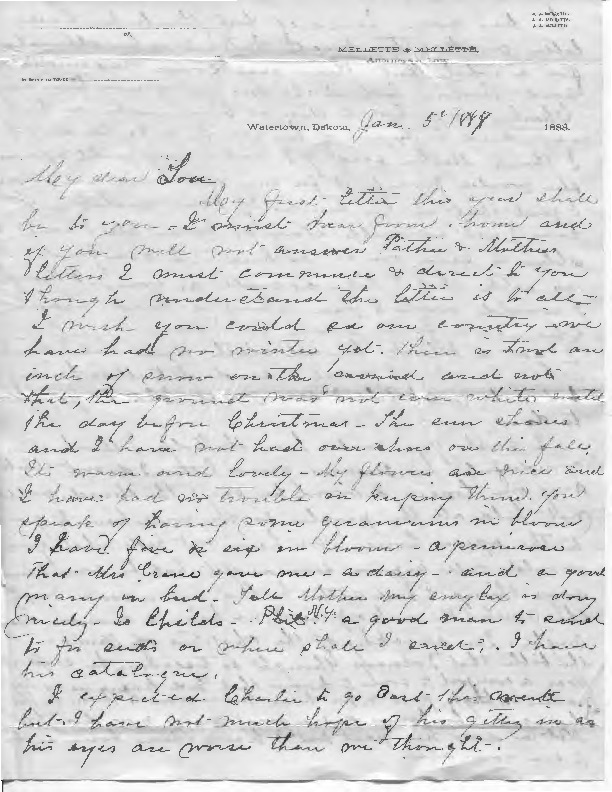 MELLETTE & MELLETTE,
Attorneys at Law
Watertown, Dakota, Jan. 5th 1889 1888.
My dear Lou
My first letter this year shall
be to you - I must hear from home and
if you will not answer Father & Mothers
letters I must commence & direct to you
though understand the letter is to all -
I wish you could see our country - we
have had no winter yet. There is not an
inch of snow on the ground and not
that, the ground was not even white until
the day before Christmas - The sun shines
and I have not had over shoes on this fall
Its warm and lovely - My flowers are nice and
I have had no trouble in keeping them. You
speak of having some geraniums in bloom
I have five or six in bloom - a primrose
that Mrs Crane gave me - a daisy - and a good
many in bud. Tell Mother my smylax is doing
nicely - Is Childs - N.Y. a good man to send
to for seeds or where shall I send; I have
his catalogue.
I expected Charlie to go East this month
but I have not much hope of his getting in as
his eyes are worse than we thought -